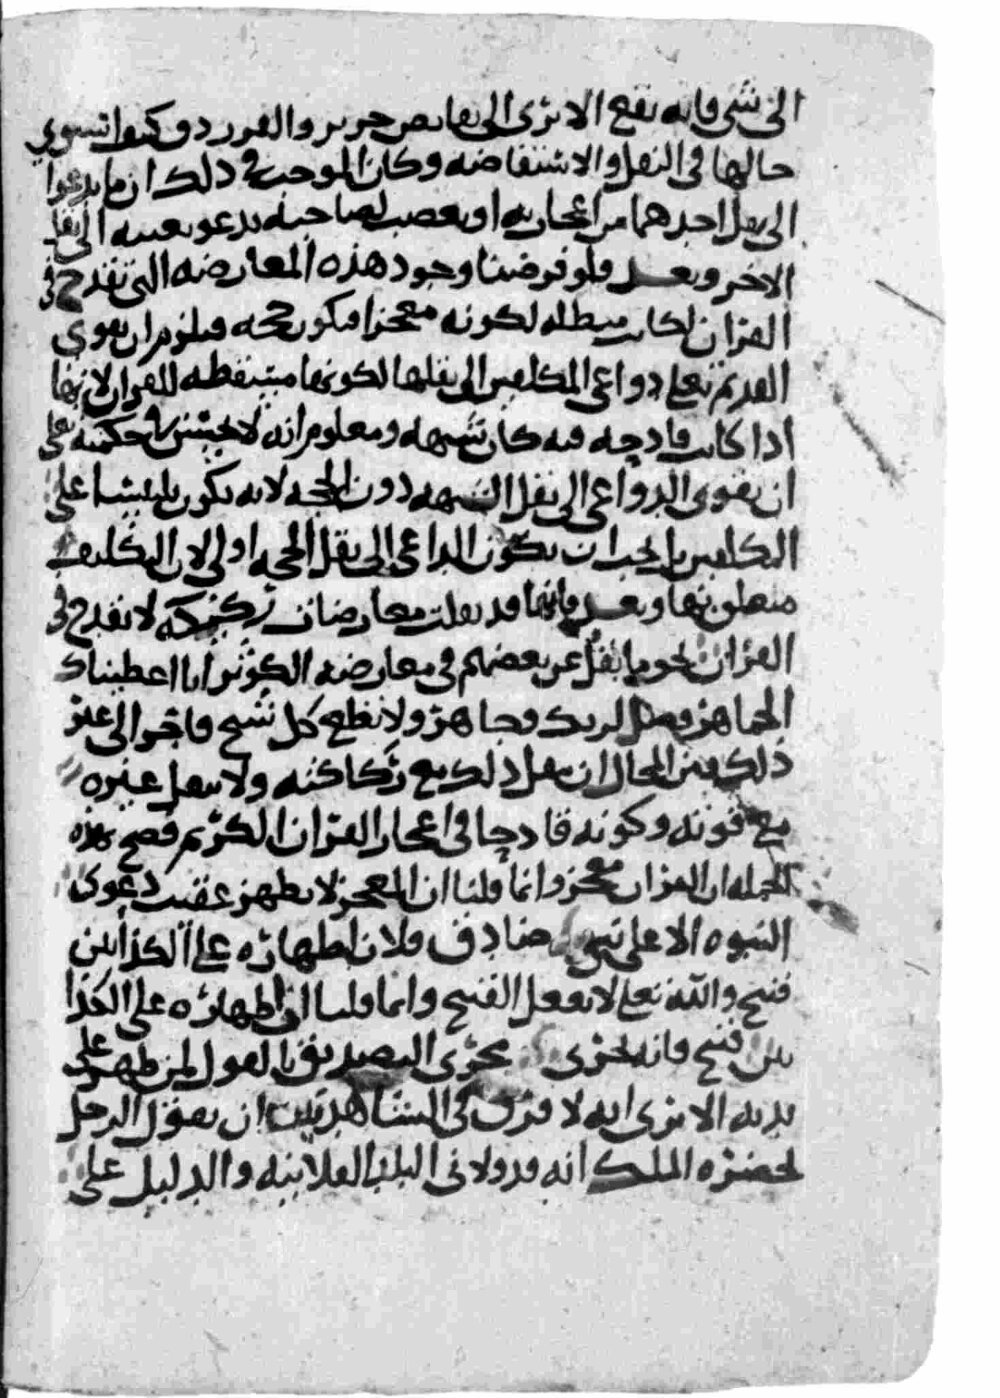 الى شي فانه يقع الا ترى الى نقايض جرير والفرزدق كيف استوى
حالها في النقل والاستفاضه وكان الموجب في ذلك ان ما يدعوا
الى نقل احدهما من اعجاب به او تعصب لصاحبه يدعو بعينه الى نقل
الاخر وبعد فلو فرضنا وجود هذه المعارضه التي تقدح في
القران لكانت مبطله لكونه معجزا فتكون حجه فيلزم ان يقوي
القديم تعلى دواعي المكلفين الى نقلها لكونها مسقطه للقران لانها
اذا كانت قادحه فيه كان شبهه ومعلوم انه لا يحسن في حكمته تعلى
ان يقوي الدواعي الى نقل الشبهه دون الحجه لانه يكون تلبيسا على
المكلفين بل يجب ان يكون الداعي الى نقل الحجه اولى لان التكليف
متعلق بها وبعد فانها قد نقلت معارضات ركيكه لا تقدح في
القران نحو ما نقل عن بعضهم في معارضه الكوثر انا اعطيناك
الجماهر فصل لربك وجاهر ولا تطع كل شيخ فاجر الى غير
ذلك فمن المحال ان ينقل ذلك مع ركاكته ولا ينقل غيره
مع قوته وكونه قادحا في اعجاز القران الكريم فصح بهذه
الجمله ان القران معجز وانما قلنا ان المعجز لا يظهر عقيب دعوى
النبوه الا على نبي صادق فلان اظهاره على الكذابين
قبيح والله تعلى لا يفعل القبيح وانما قلنا ان اظهاره على الكذا
بين قبيح فانه يجري مجرى التصديق بالقول لمن ظهر على
يديه الا ترى انه لا فرق في الشاهد بين ان يقول الرجل
بحضره الملك انه قد ولاني البلد الفلانيه والدليل على